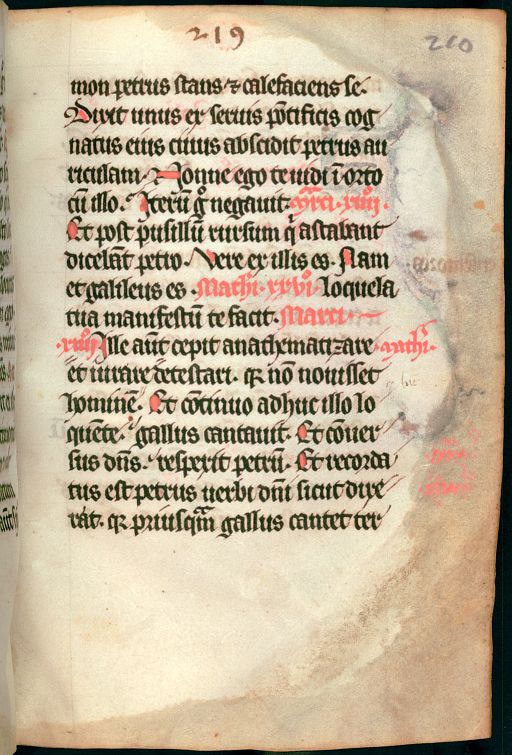 219
210
mon petrus stans ⁊ calefaciens se.
Dixit unus ex seruis põtificis cog
natus eius cuius abscidit petrus au
riculam. Nonne ego te uidi ĩ orto
cũ illo. Iterũ gͦ negauit. marci. xiiij.
Et post pusillũ rursum q̃ astabant
dicebãt petro. Vere ex illis es. Nam
et galileus es. Mathi. xxvi. loquela
tua manifestũ te facit. Marci.
.xiiij. Ille aũt cepit anathematizare. mathi.
et iurare detestari. qr nõ nouisset
hominẽ. Et cõtinuo adhuc illo lo
quẽte. gallus cantauit. Et cõuer
sus dñs. respexit petrũ. Et recorda
tus est petrus uerbi dñi sicut dixe
rat. qr priusqᷓm gallus cantet ter